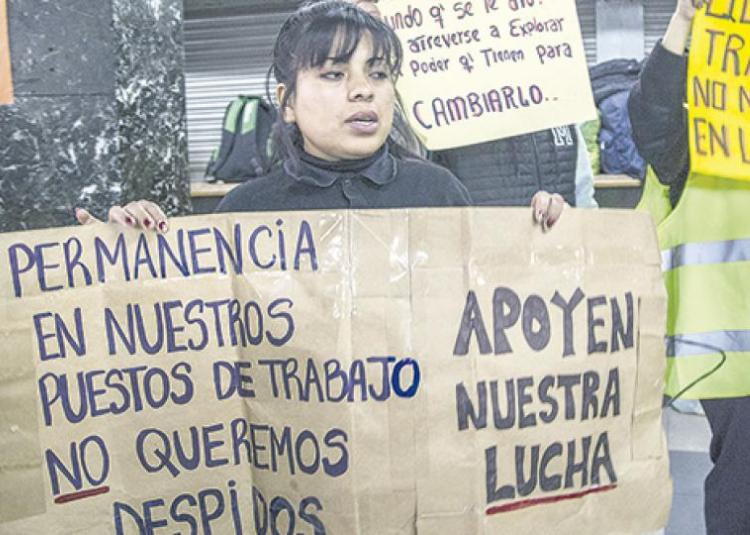 undo q' se le
atreverse a Explorar
Poder q' Tienen para
CAMBIARLO..
TRA
NO N
EN L
PERMANENCIA
EN NUESTROS
PUESTOS DE TRABAJO
NO QUEREMOS
DESPIDOS
APOYEN
NUESTRA
LUCHA